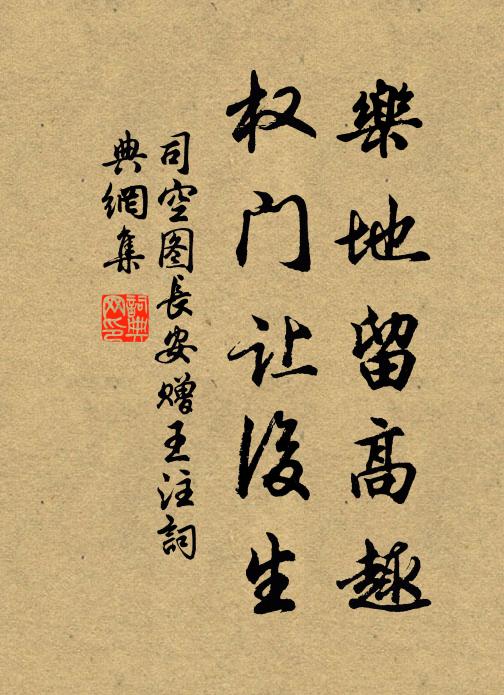 樂地留高趣
权门让後生
司空图長安赠王注詞
典網集
詞典网印